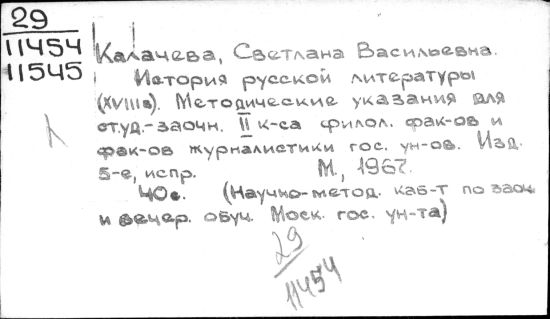 29
11454
11545
Калачева, Светлана Васильевна.
История русской литературы
(XVIIIв). Методические указания для
студ.-заочн. II к-са филол. фак-ов и
фак-ов журналистики гос. ун-ов. Изд.
5-е, испр. М., 1967.
40с. (Научно-метод. каб-т по заоч.
и вечер. обуч. Моск. гос. ун-та)
29
11454